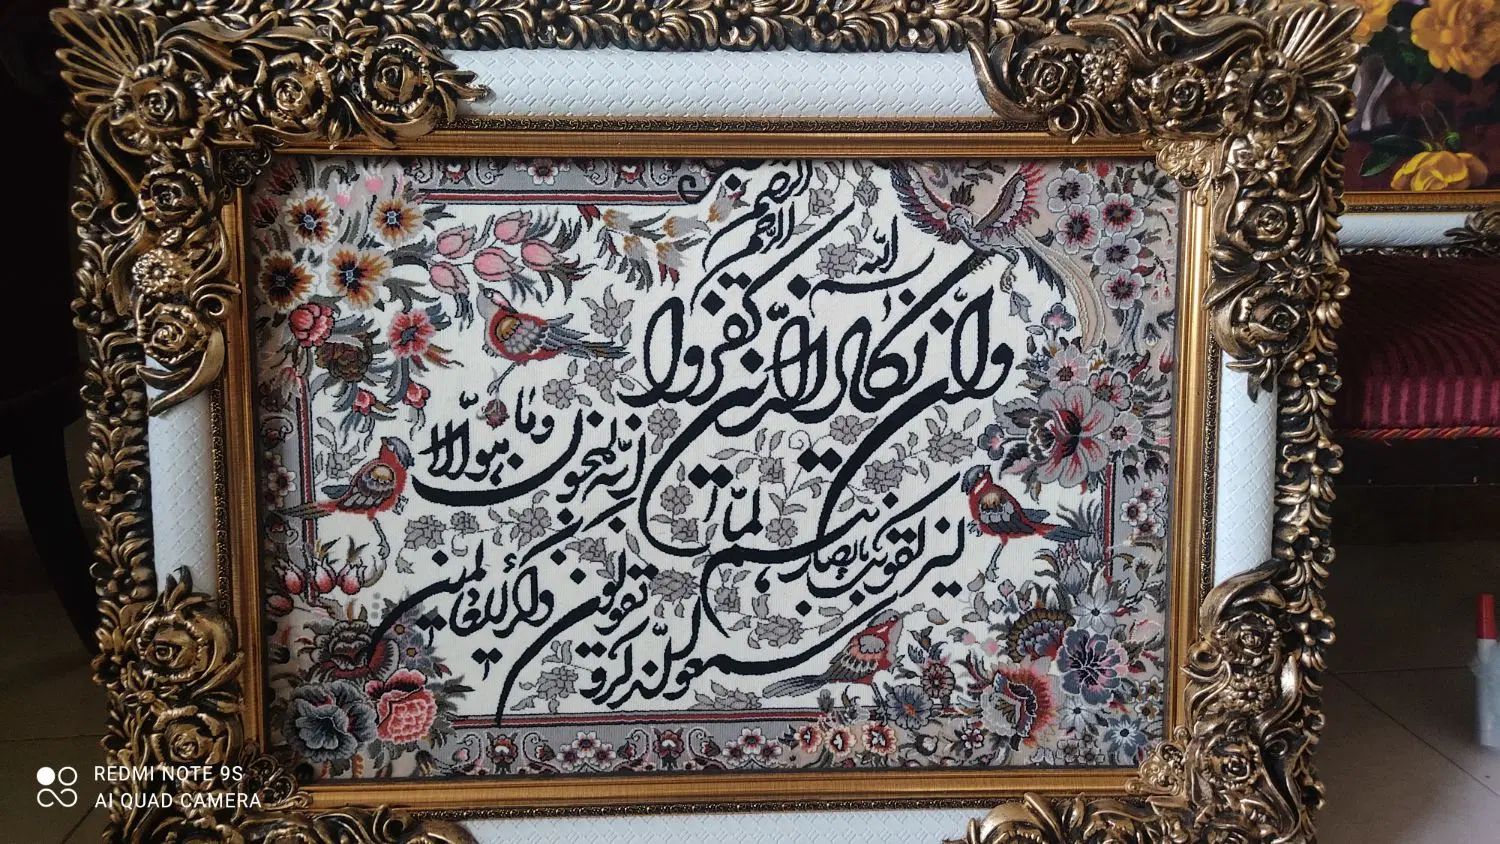 بسم الله الرحمن الرحیم
وان یکاد الذین کفروا
لیزلقونک بابصارهم لما
سمعوا الذکر و یقولون
انه لمجنون وما هو الا
ذکر للعالمین
REDMI NOTE 9S
AI QUAD CAMERA